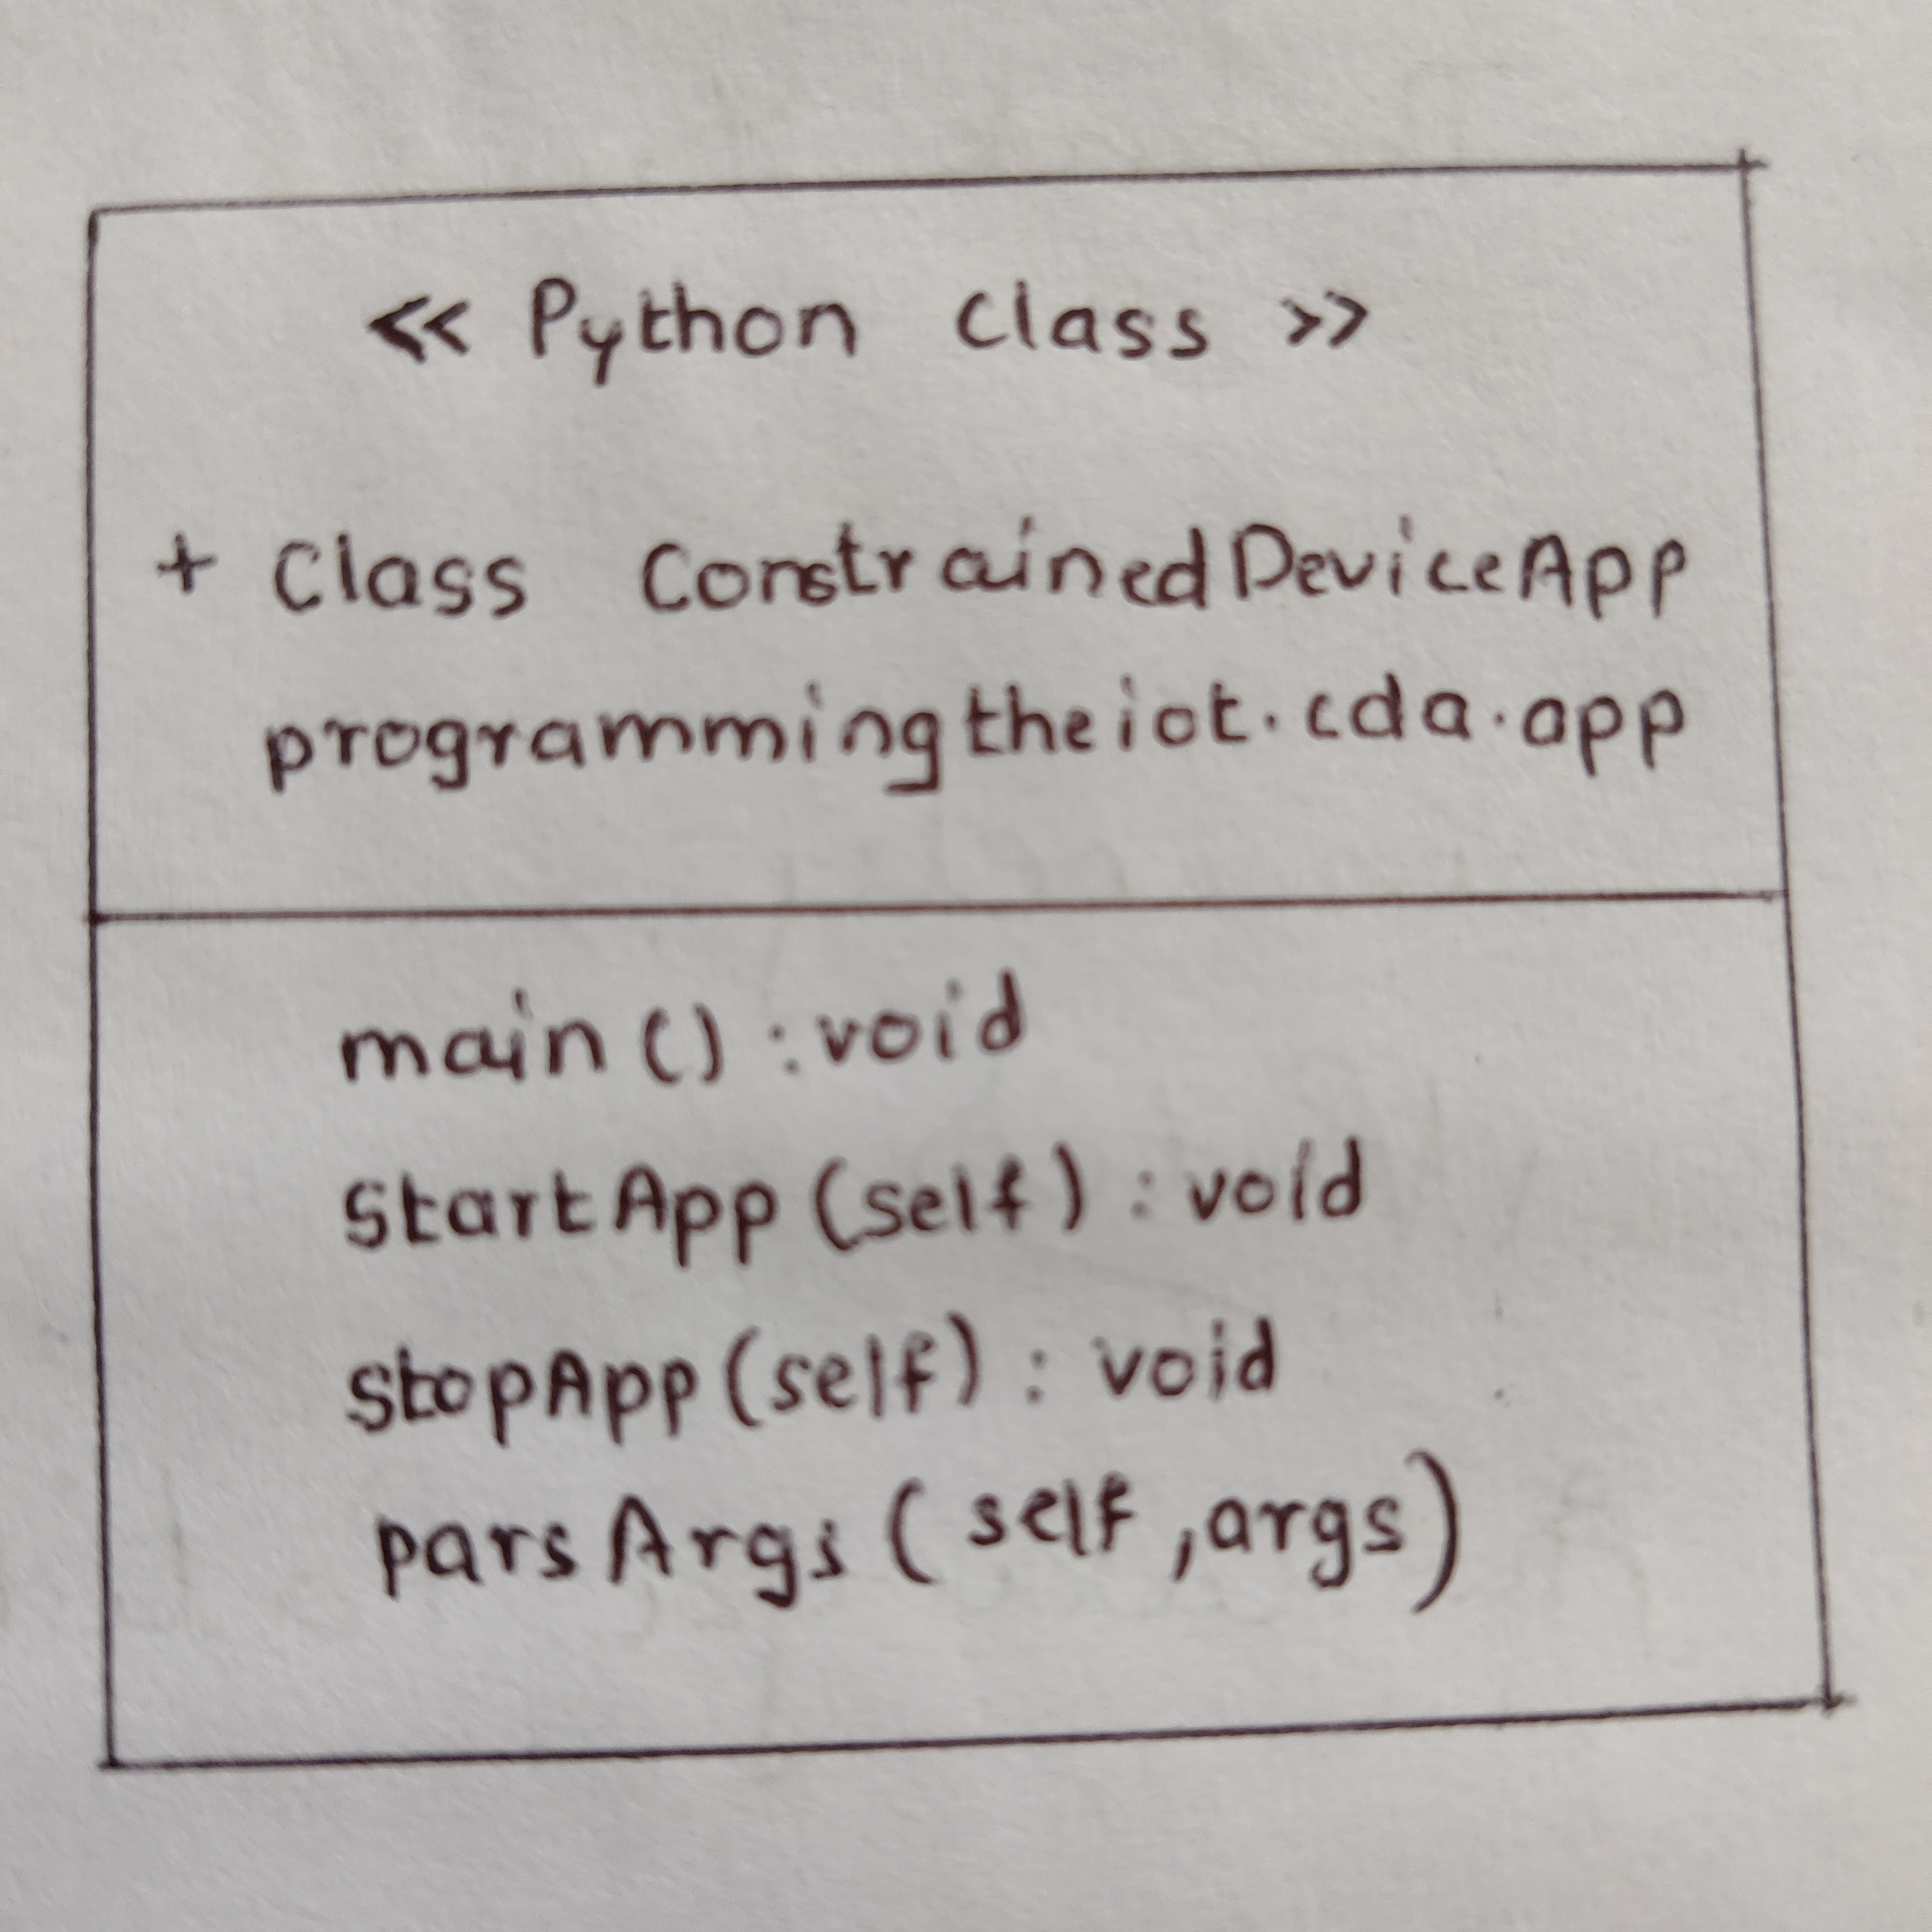 << Python class >>
+ Class ConstrainedDeviceApp
programmingtheiot.cda.app
main() : void
startApp (self) : void
stopApp (self) : void
parsArgs ( self , args)